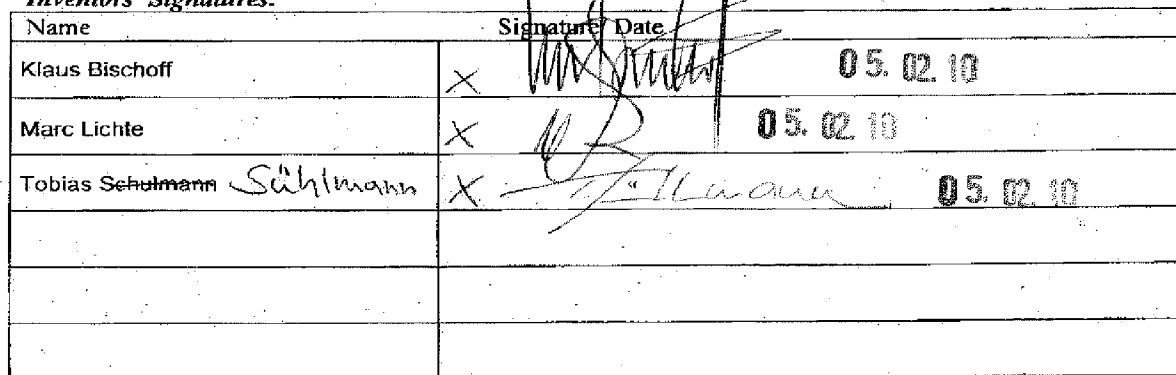 Inventors' Signatures:
Name Signature/ Date
Klaus Bischoff X 05. 02. 10
Marc Lichte X 05. 02. 10
Tobias Schulmann Sühlmann X Sühlmann 05. 02. 10